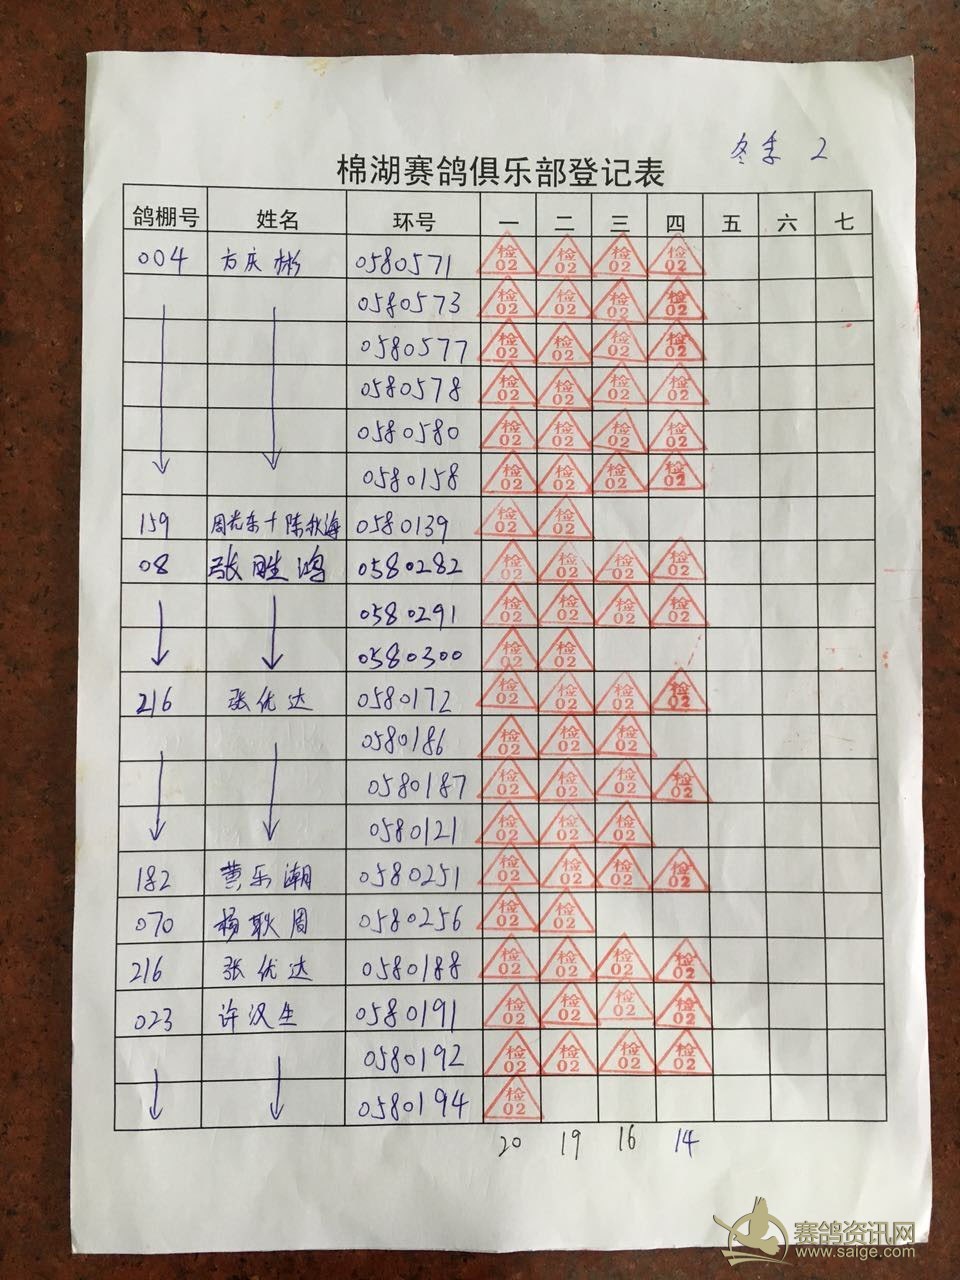 冬季 2
棉湖赛鸽俱乐部登记表
鸽棚号 姓名 环号 一 二 三 四 五 六 七
004 方庆彬 0580571 检02 检02 检02 检02
0580573 检02 检02 检02 检02
0580577 检02 检02 检02 检02
0580578 检02 检02 检02 检02
0580580 检02 检02 检02 检02
0580158 检02 检02 检02 检02
159 周光东十陈秋海 0580139 检02 检02
08 张胜鸿 0580282 检02 检02 检02 检02
0580291 检02 检02 检02 检02
0580300 检02 检02
216 张优达 0580172 检02 检02 检02 检02
0580186 检02 检02 检02
0580187 检02 检02 检02 检02
0580121 检02 检02 检02
182 黄乐潮 0580251 检02 检02 检02 检02
070 杨耿周 0580256 检02 检02
216 张优达 0580188 检02 检02 检02 检02
023 许汉生 0580191 检02 检02 检02 检02
0580192 检02 检02 检02 检02
0580194 检02
20 19 16 14
赛鸽资讯网
www.saige.com